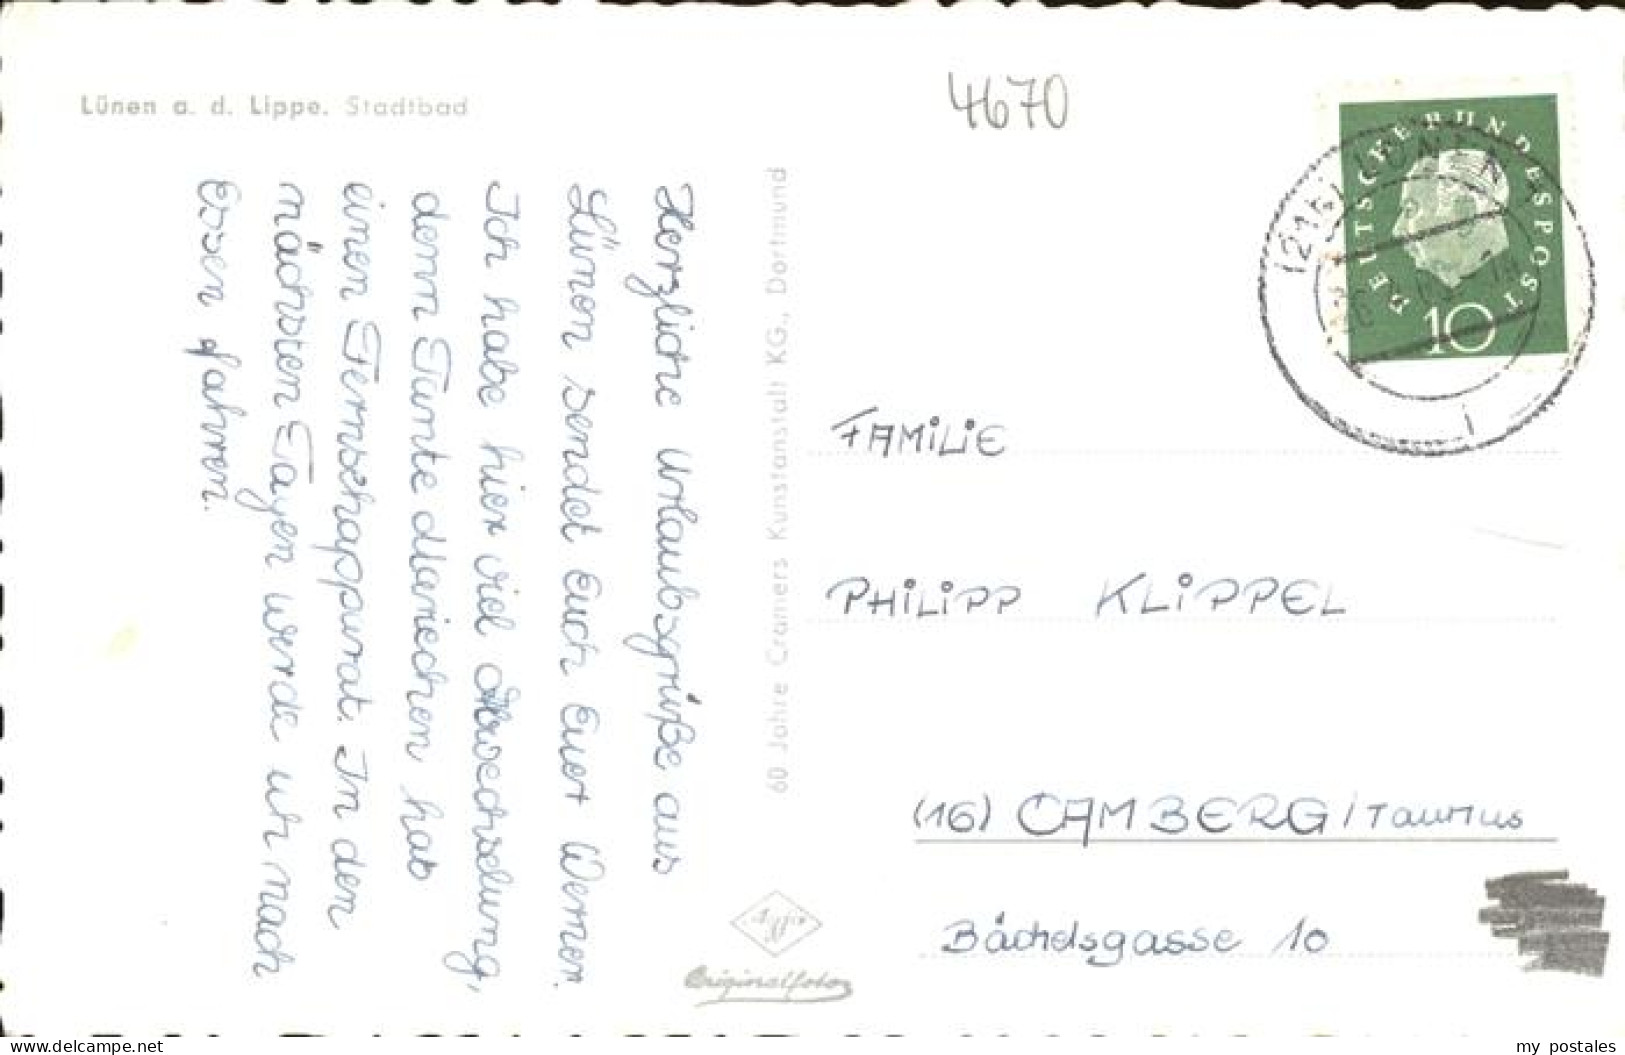 Lünen a. d. Lippe. Stadtbad
4670
DEUTSCHE BUNDESPOST
10
(21b) LÜNEN
Herzliche Urlaubsgrüße aus
Lünen sendet Euch Euer Werner.
Ich habe hier viel Abwechselung,
denn Tante Mariechen hab
einen Fernschapparat. In den
nächsten Tagen werde ich nach
Essen fahren.
60 Jahre Cramers Kunstanstalt KG., Dortmund
Agfa
Originalfoto
FAMiLiE
PHiLiPP KLiPPEL
(16) CAMBERG/Taunus
Bächelsgasse 10
www.delcampe.net
my_postales